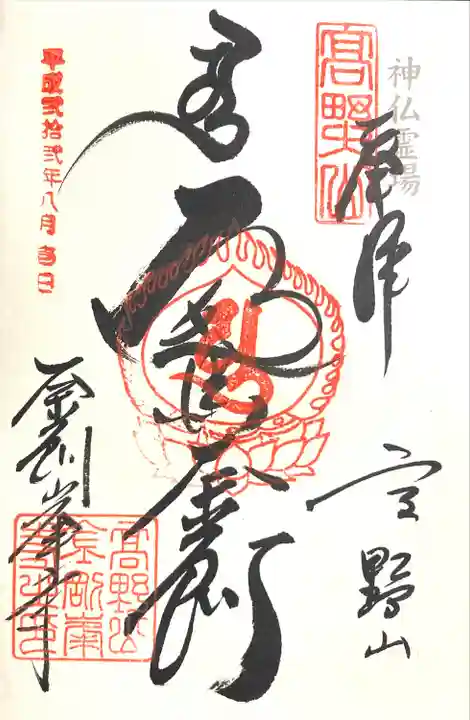 神仏霊場
奉拝
高野山
高野山
遍照金剛
平成弐拾弐年八月吉日
金剛峯寺
高野山
金剛峯
寺之印